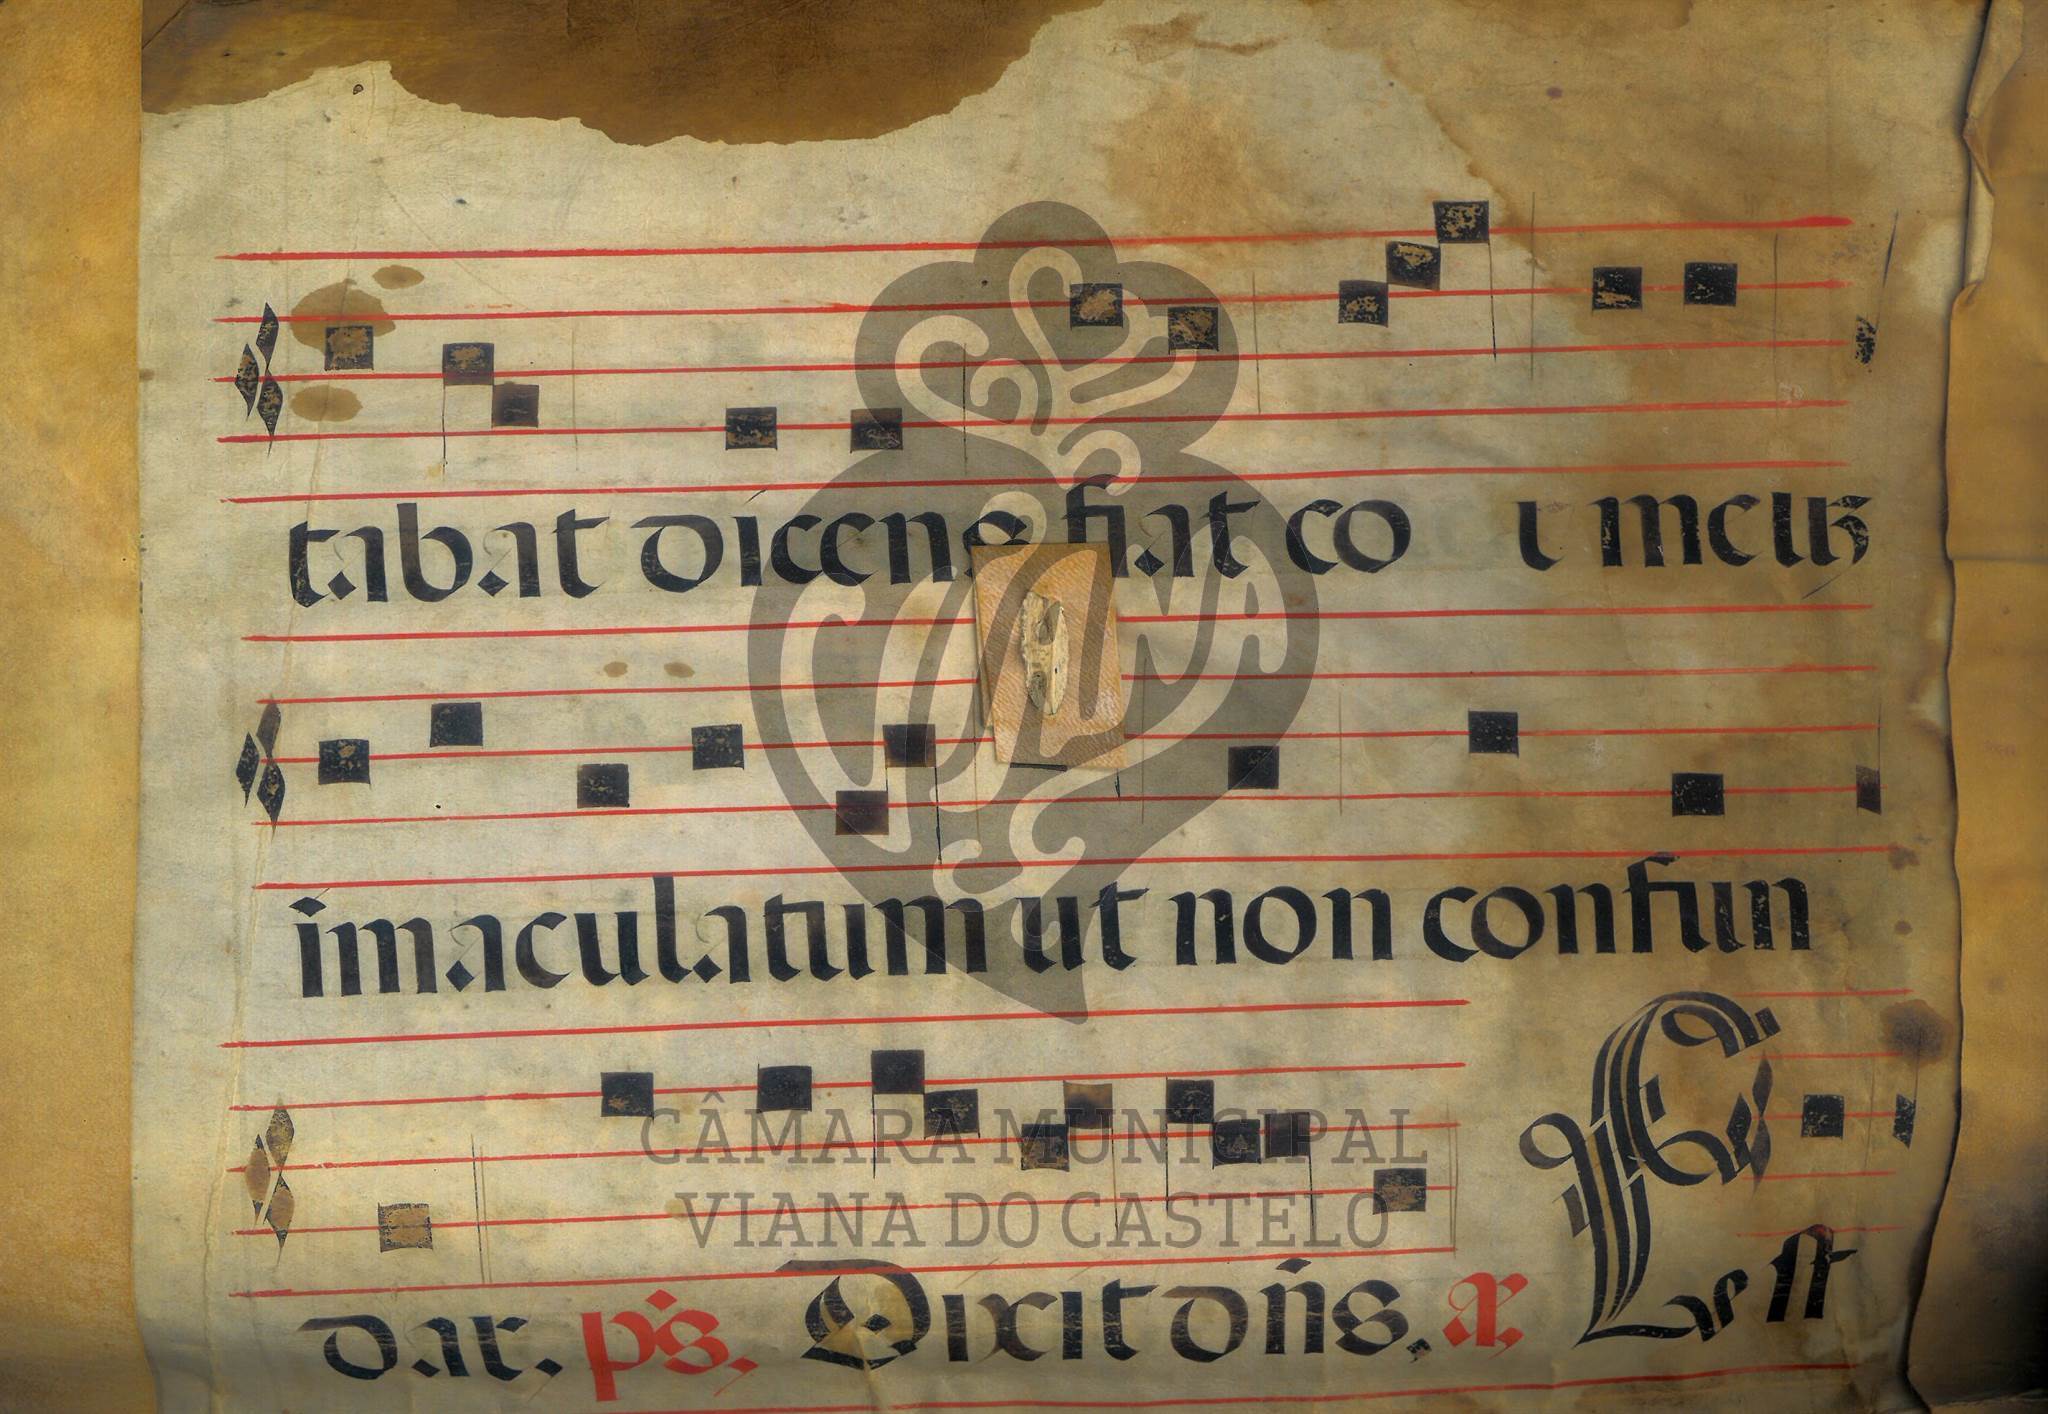 tabat dicens fiat co i meuz
imaculatum ut non confun
dar. ps. Dixit dñs.
CÂMARA MUNICIPAL
VIANA DO CASTELO